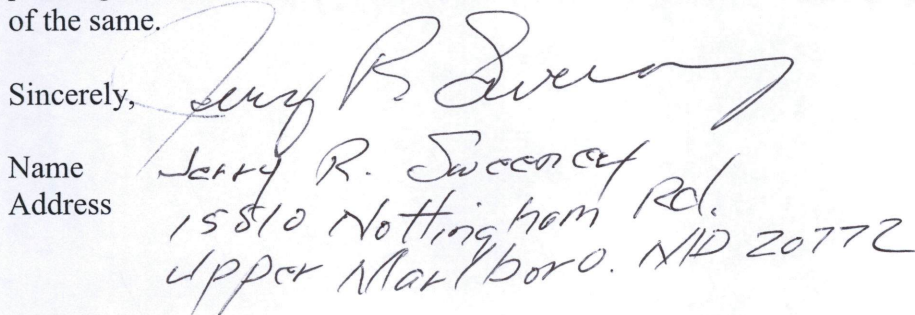 of the same.
Sincerely, Jerry R. Sweeney
Name Jerry R. Sweeney
Address
15810 Nottingham Rd.
Upper Marlboro. MD 20772